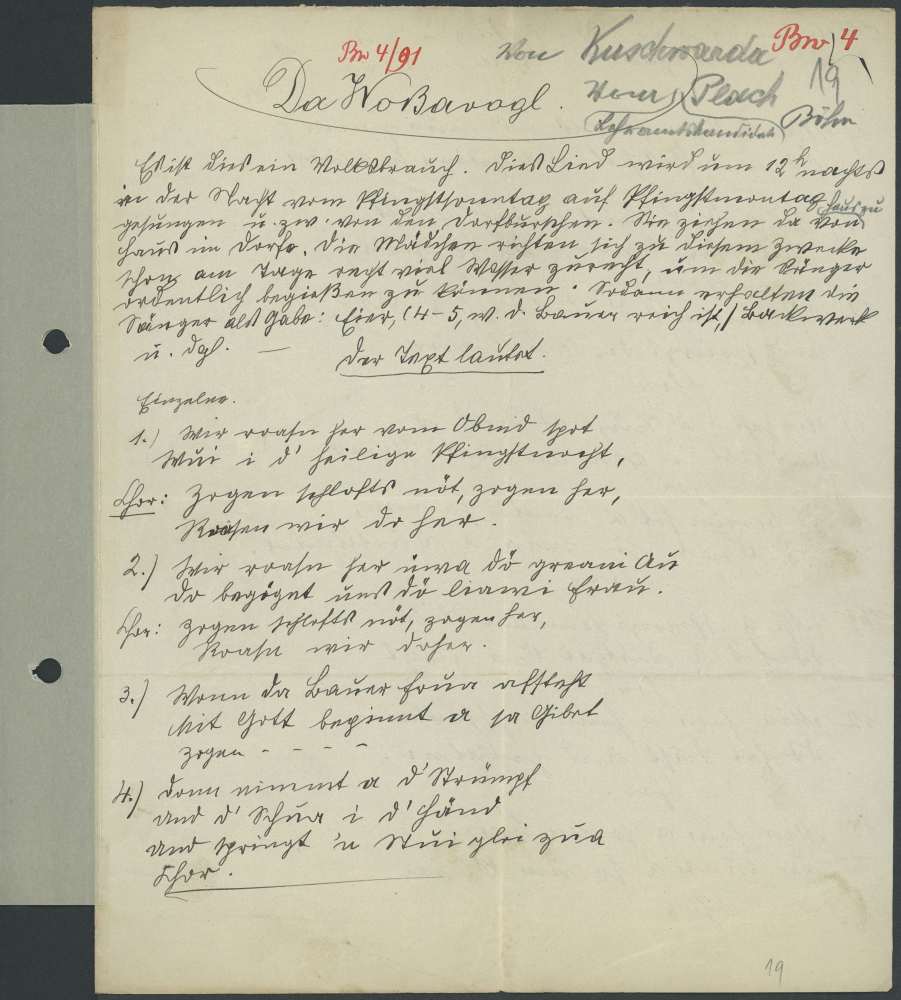 Bw 4/91
Von Kuschwarda Bw 4
19
Da Woßavogl.
Vom Plach
Lehramtskandidat Böhm
Es ist dies ein Volksbrauch. Dies Lied wird um 12h nachts
in der Nacht vom Pfingstsonntag auf Pfingstmontag
gesungen u. zw. von den Dorfburschen. Sie ziehen da von Haus zu
Haus im Dorfe. Die Mädchen richten sich zu diesem Zwecke
schon am Tage recht viel Wasser zurecht, um die Sänger
ordentlich begießen zu können. Sodann erhalten die
Sänger als Gabe: Eier, (4-5, w. d. Bauer reich ist,) Backwerk
u. dgl. —
Der Text lautet.
Einzelne.
1.) Wir roasn her vom Obend spot
Wui i d' heilige Pfingstnocht,
Chor: Zogen schlofts nöt, zogen her,
Roasen wir do her.
2.) Wir roasn her üwa dö greani Au
Do begögnt uns dö liawi Frau.
Chor: Zogen schlofts nöt, zogen her,
Roasn wir doher.
3.) Wonn da Bauer frua afsteht
Mit Gott beginnt a sa Gibet
Zogen - - - -
4.) Donn nimmt a d' Strümpf
und d' Schua i d' Händ
und springt 'n Stui glei zua
Chor.
19